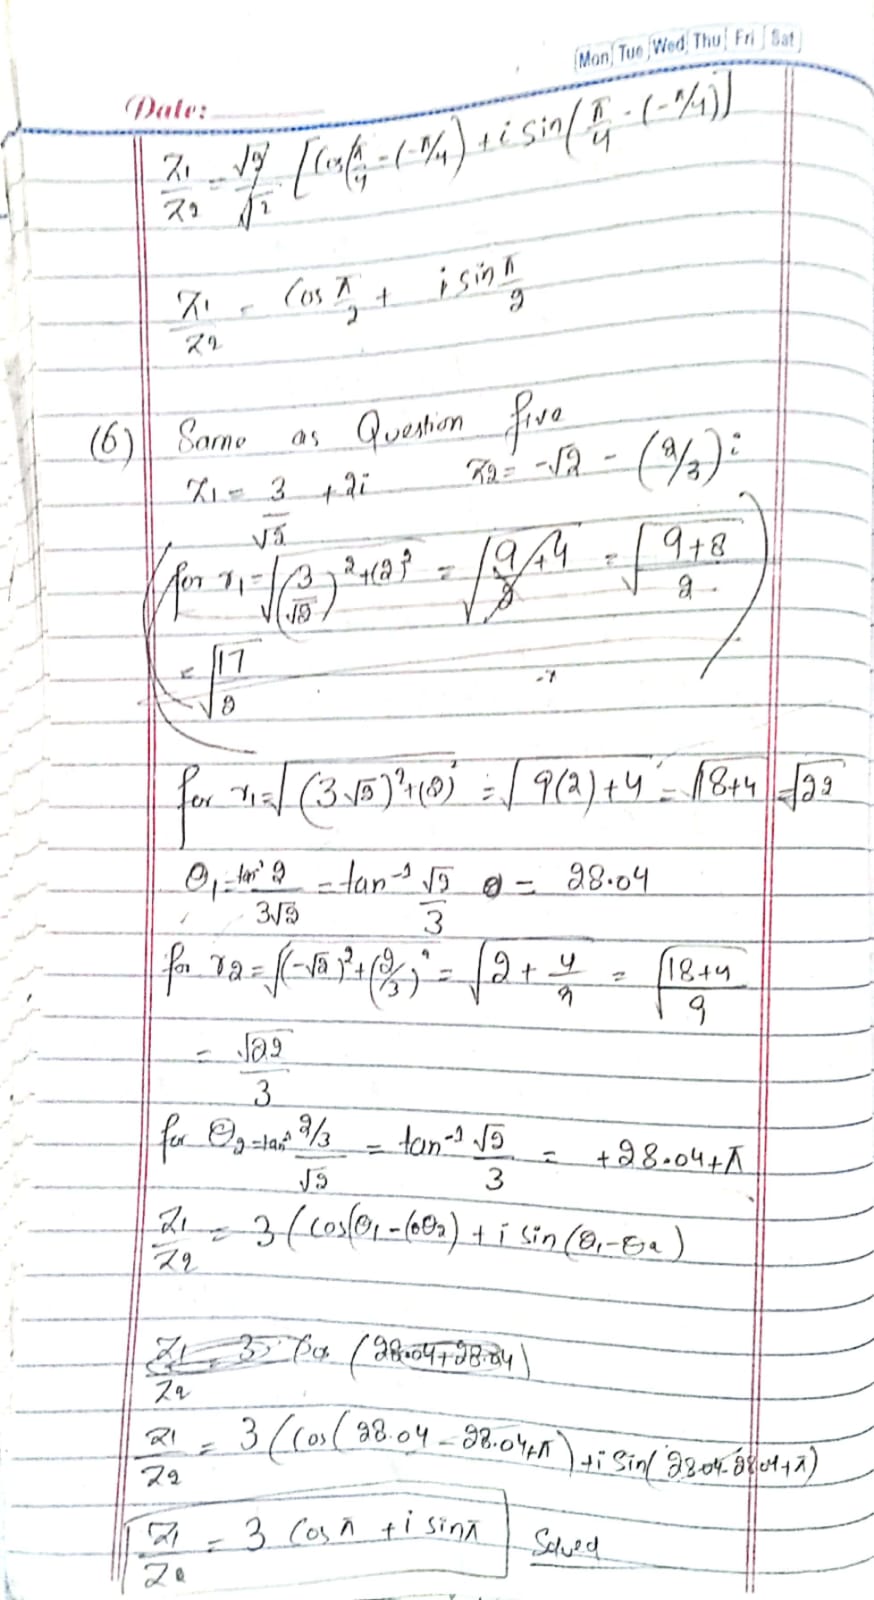 Mon Tue Wed Thu Fri Sat
Date:
z₁/z₂ = √2/√2 [Cos(π/4 - (-π/4) + i sin(π/4 - (-π/4)]
z₁/z₂ = Cos π/2 + i sin π/2
(6) Same as Question five
z₁ = 3/√2 + 2i z₂ = -√2 - (2/3)i
for r₁ = √((3/√2)² + (2)²) = √(9/2 + 4) = √((9+8)/2)
= √(17/2)
for r₁ = √((3√2)² + (2)²) = √(9(2)+4) = √(18+4) = √22
θ₁ = tan⁻¹ 2/3√2 = tan⁻¹ √2/3 = 28.04
for r₂ = √((-√2)² + (2/3)²) = √(2 + 4/9) = √((18+4)/9)
= √22/3
for θ₂ = tan⁻¹ (2/3)/√2 = tan⁻¹ √2/3 = +28.04+π
z₁/z₂ = 3 (cos(θ₁ - (θ₂) + i sin (θ₁ - θ₂)
z₁/z₂ = 3 (28.04+28.04)
z₁/z₂ = 3 (Cos(28.04 - 28.04+π) + i Sin(28.04-28.04+π)
z₁/z₂ = 3 Cos π + i sin π Solved